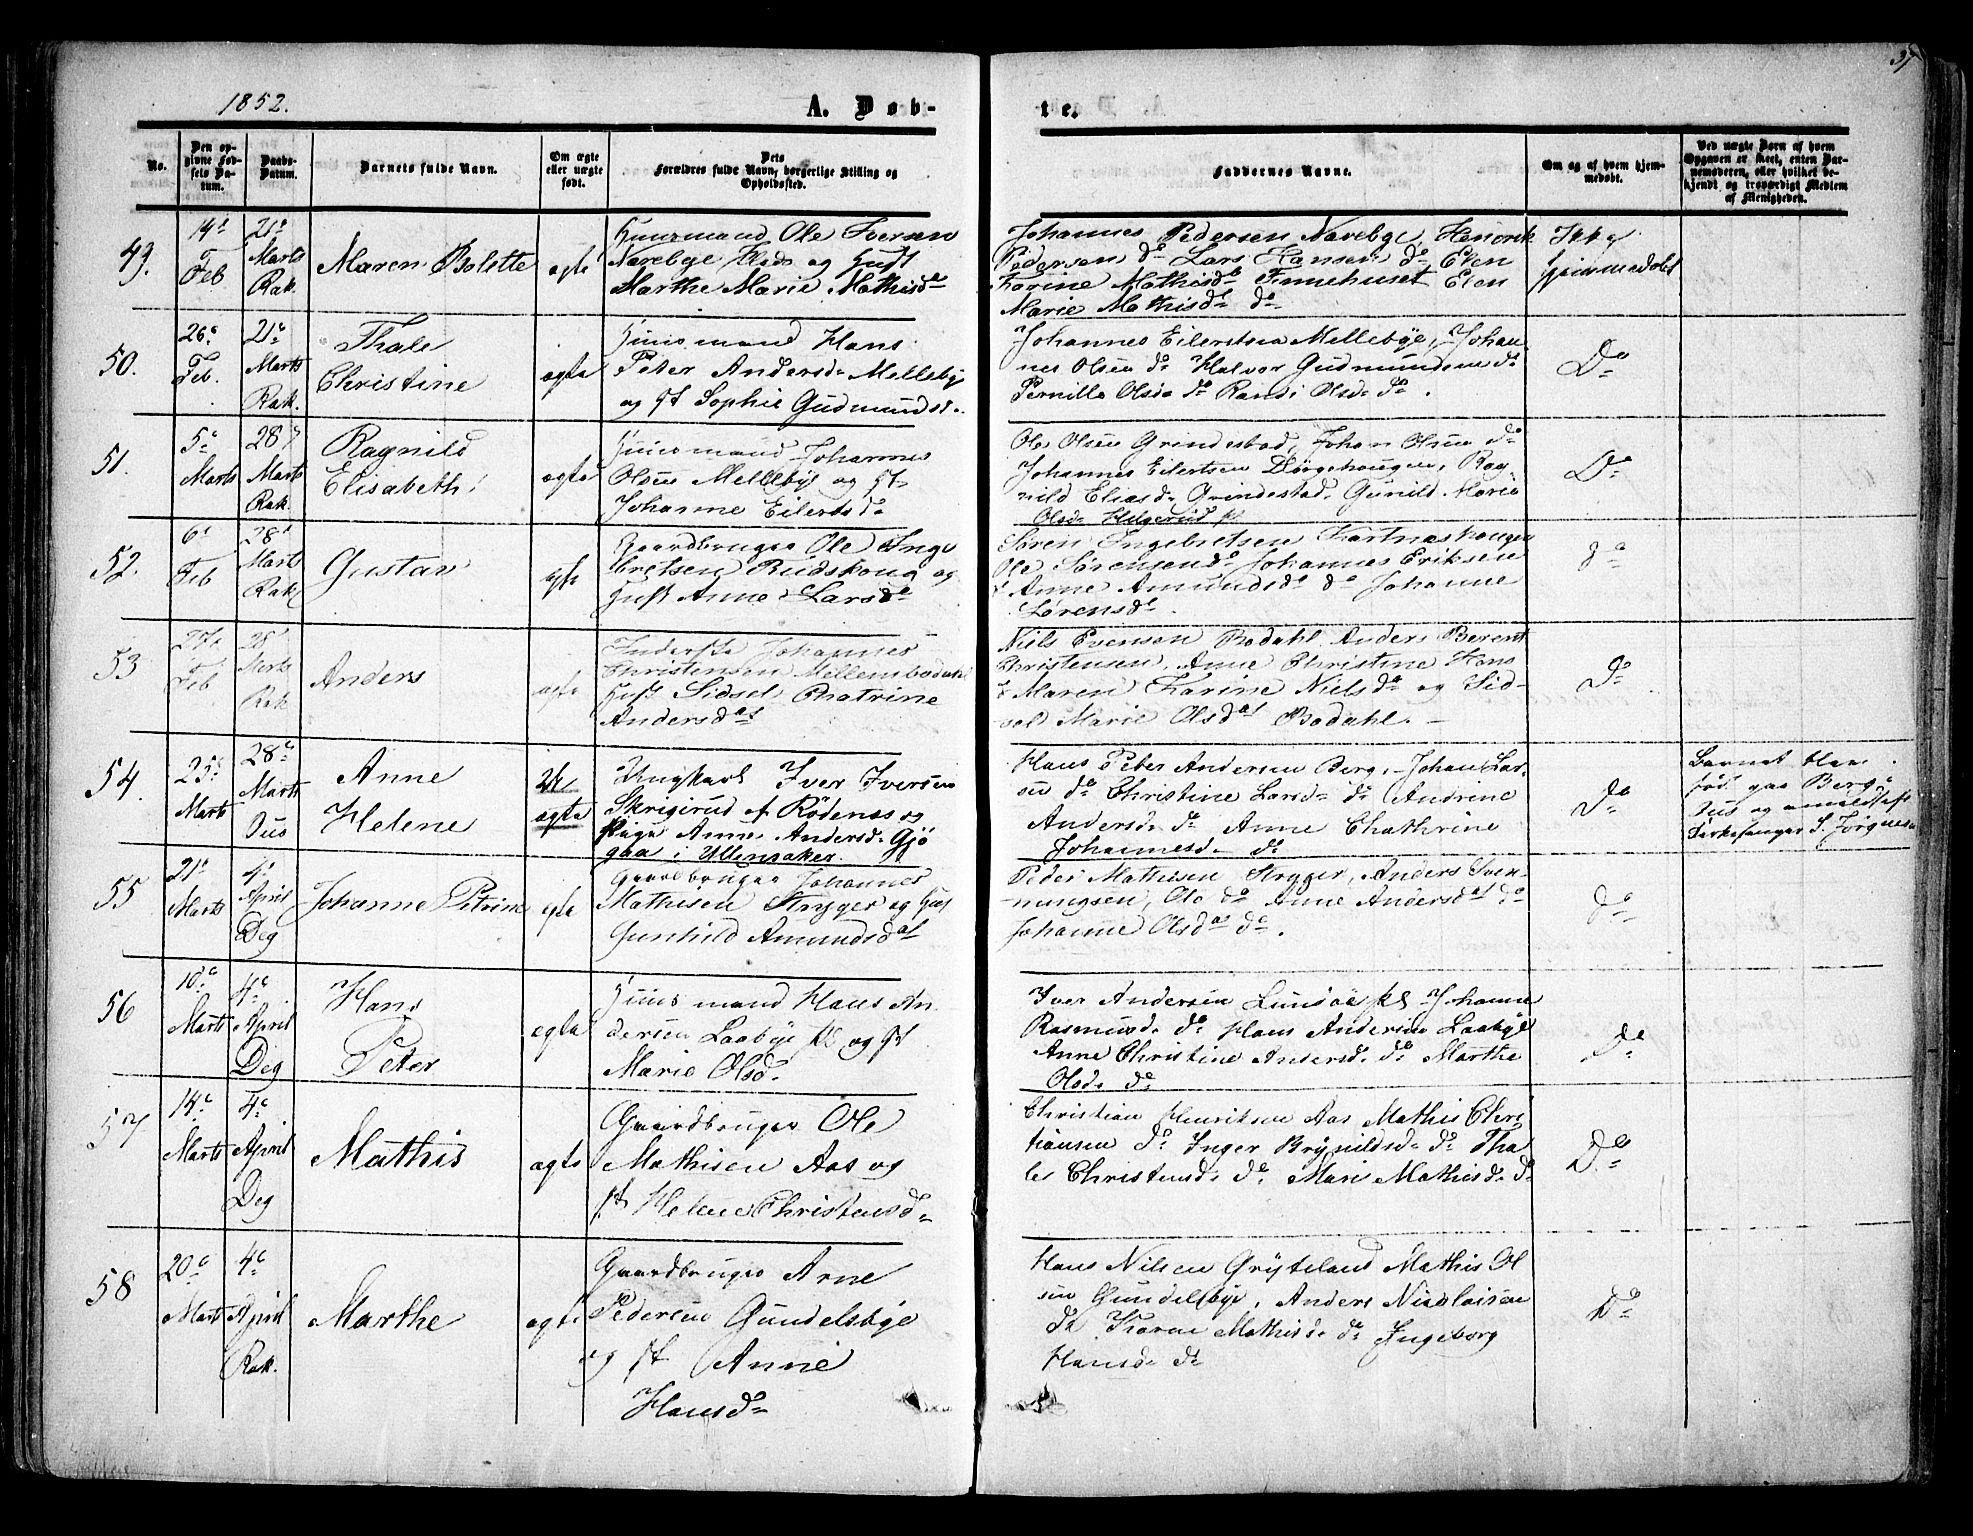 1852.
A. Døb-
te.
37
No.
Den op-
givne Fød-
sels Da-
tum.
Daabs-
Datum.
Barnets fulde Navn.
Om ægte
eller uægte
født.
Dets
Forældres fulde Navn, borgerlige Stilling og
Opholdssted.
Faddernes Navne.
Om og af hvem hjem-
medøbt.
Ved uægte Børn af hvem
Opgaven er skeet, enten Bar-
nemoderen, eller hvilket be-
kjendt og troværdigt Medlem
af Menigheden.
49.
19d
Feb
21d
Marts
Rak.
Maren Bolette
ægte
Huusmand Ole Iversen
Narebye Eids og Hust
Marthe Marie Mathisd
Johannes Pedersen Narebye, Henrik
Pedersen do Lars Hansen do Elen
Karine Mathisd Finnehuset Elen
Marie Mathisd do
Ikke
hjemmedøbt
50.
26
Feb.
21
Marts
Rak.
Thale
Christine
ægte
Huusmand Hans
Peter Andersd Mellebye
og H Sophie Gudmundsd.
Johannes Eilertsen Mellebye, Johan
nes Olsen do Halvor Gudmundsen do
Pernille Olsd do Randi Olsd do.
Do
51.
5
Marts
28
Marts
Rak.
Ragnild
Elisabeth
ægte
Huusmand Johannes
Olsen Mellebye og H
Johanne Eilertsd
Ole Olsen Grindestad, Johan Olsen do
Johannes Eilertsen Dørgehougen, Rag-
nild Eliasd Grindestad, Gunild Marie
Olsd Helgerud
Do
52.
6
Feb
28
Marts
Rak
Gustav
ægte
Gaardbruger Ole Inge
bretsen Rudskoug og
Hust Anne Larsd
Søren Ingebretsen
Ole Sørensen do Johannes Eriksen
Anne Amundsd do Johanne
Sørensd.
do
53
27
Feb
28
Marts
Rak
Anders
ægte
Inderste Johannes
Christensen Mellembodahl
Hust Sidsel Chatrine
Andersdat
Niels Evensen Bodahl Anders Berent
Christensen, Anne Christine Hans
Maren Karine Nielsd og Sid-
sel Marie Olsdat Bodahl.
Do
54.
25
Marts
28
Marts
Duo
Anne
Helene
Uægte
Ungkarl Iver Iversen
Skrigirud af Rødenæs og
Pige Anne Andersd Gjø
gaa i Ullensaker.
Hans Peter Andersen Berg, Johan Lar-
sen do Christine Larsd do Andrine
Andersd do Anne Chathrine
Johannesd do
Do
Barnet blev
fød paa Berg
Duo og anmeldt af
Kirkesanger S. Jørgensen
55
21
Marts
4
April
Deg
Johanne Petrine
ægte
Gaardbruger Johannes
Mathisen Stryger og Hust
Gunhild Amundsdat
Peder Mathisen Stryger, Anders Sven-
nungsen, Ole do Anne Andersdat do
Johanne Olsdat do.
do
56
10
Marts
4
April
Deg
Hans
Peter
ægte
Huusmand Hans An
dersen Laabye og H
Marie Olsd.
Iver Andersen Lundøe Johanne
Rasmusd do Hans Andersen Laabye
Anne Christine Andersd do Marthe
Olsd do
Do
57
14
Marts
4
April
Deg
Mathis
ægte
Gaardbruger Ole
Mathisen Aas og
H Helene Christensd
Christian Henriksen Aas Mathis Chri
stiansen do Inger Brynildsd do Tha
le Christensd do Mari Mathisd do
Do
58
20
Marts
4
April
Rak.
Marthe
ægte
Gaardbruger Arne
Pedersen Gundelsbye
og H Anne
Hansd
Hans Nilsen Gryteland Mathis Ol
sen Gundelsbye, Anders Nicolaisen
do Karen Mathisd do Ingeborg
Hansd do
Do